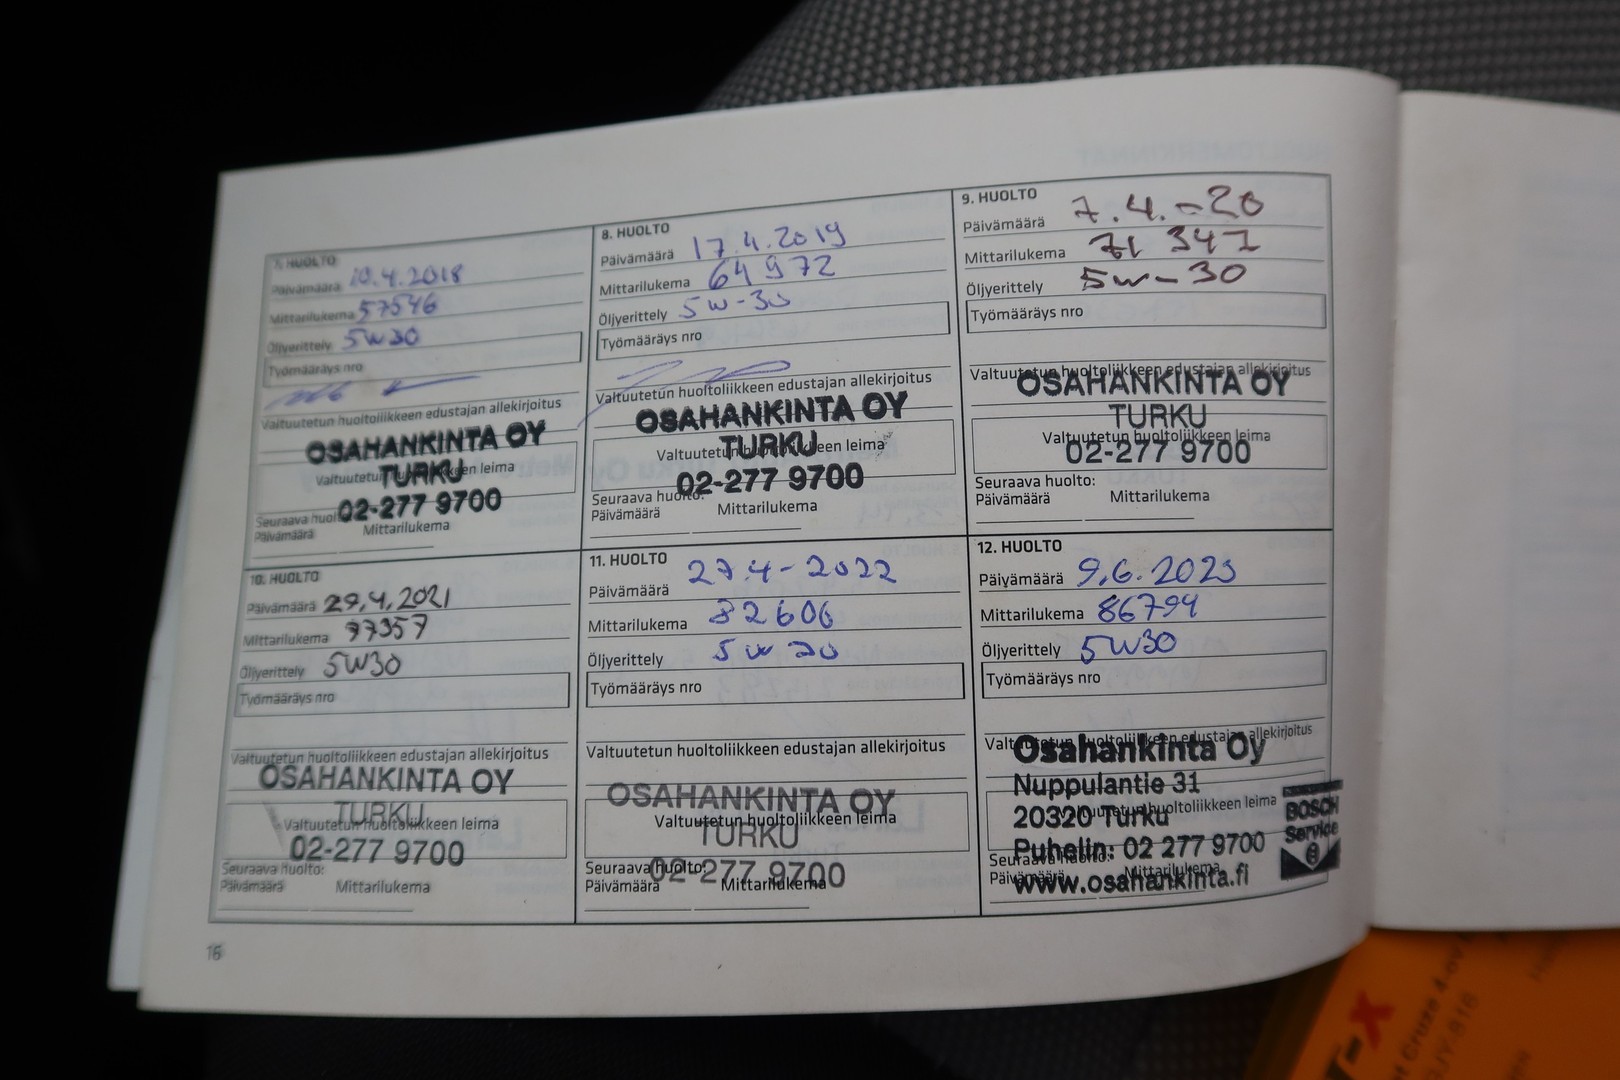 7. HUOLTO
Päivämäärä 10.4.2018
Mittarilukema 57546
Öljyerittely 5W30
Työmääräys nro
Valtuutetun huoltoliikkeen edustajan allekirjoitus
OSAHANKINTA OY
TURKU
Valtuutetun huoltoliikkeen leima
02-277 9700
Seuraava huolto:
Päivämäärä Mittarilukema
8. HUOLTO
Päivämäärä 17.4.2019
Mittarilukema 64972
Öljyerittely 5W-30
Työmääräys nro
Valtuutetun huoltoliikkeen edustajan allekirjoitus
OSAHANKINTA OY
TURKU
Valtuutetun huoltoliikkeen leima
02-277 9700
Seuraava huolto:
Päivämäärä Mittarilukema
9. HUOLTO
Päivämäärä 7.4.-20
Mittarilukema 71 341
Öljyerittely 5W-30
Työmääräys nro
Valtuutetun huoltoliikkeen edustajan allekirjoitus
OSAHANKINTA OY
TURKU
Valtuutetun huoltoliikkeen leima
02-277 9700
Seuraava huolto:
Päivämäärä Mittarilukema
10. HUOLTO
Päivämäärä 29.4.2021
Mittarilukema 77357
Öljyerittely 5W30
Työmääräys nro
Valtuutetun huoltoliikkeen edustajan allekirjoitus
OSAHANKINTA OY
TURKU
Valtuutetun huoltoliikkeen leima
02-277 9700
Seuraava huolto:
Päivämäärä Mittarilukema
11. HUOLTO
Päivämäärä 27.4-2022
Mittarilukema 82606
Öljyerittely 5W30
Työmääräys nro
Valtuutetun huoltoliikkeen edustajan allekirjoitus
OSAHANKINTA OY
Valtuutetun huoltoliikkeen leima
TURKU
02-277 9700
Seuraava huolto:
Päivämäärä Mittarilukema
12. HUOLTO
Päivämäärä 9.6.2023
Mittarilukema 86794
Öljyerittely 5W30
Työmääräys nro
Valtuutetun huoltoliikkeen edustajan allekirjoitus
Osahankinta Oy
Nuppulantie 31
Valtuutetun huoltoliikkeen leima
20320 Turku
Puhelin: 02 277 9700
www.osahankinta.fi
BOSCH
Service
Seuraava huolto:
Päivämäärä Mittarilukema
16
T-X
Cruze 4-ov
JY-816